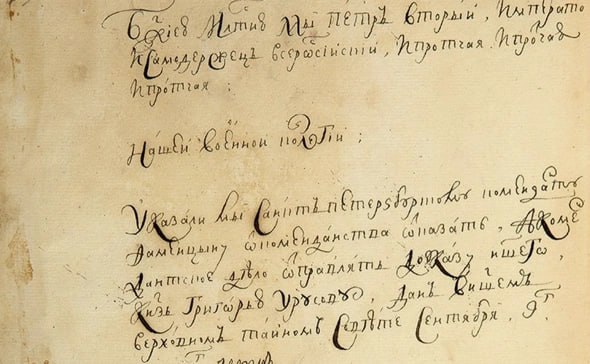 Бжиею Млтию Мы Петръ Вторый, Императо
И Самодержецъ всеросийскій, И протчая И протчая
И протчая :
Нашей военной колегіи ;
Указали мы Санктъ петерзбургскому коменданту
Фаминцыну ѿ комендантства ѿказать, А коме
дантское дѣло ѿправлять до указу ншего,
Кнзь Григорью Урусову, Данъ в нашемъ
верховномъ тайномъ Совѣте Сентября, 9г